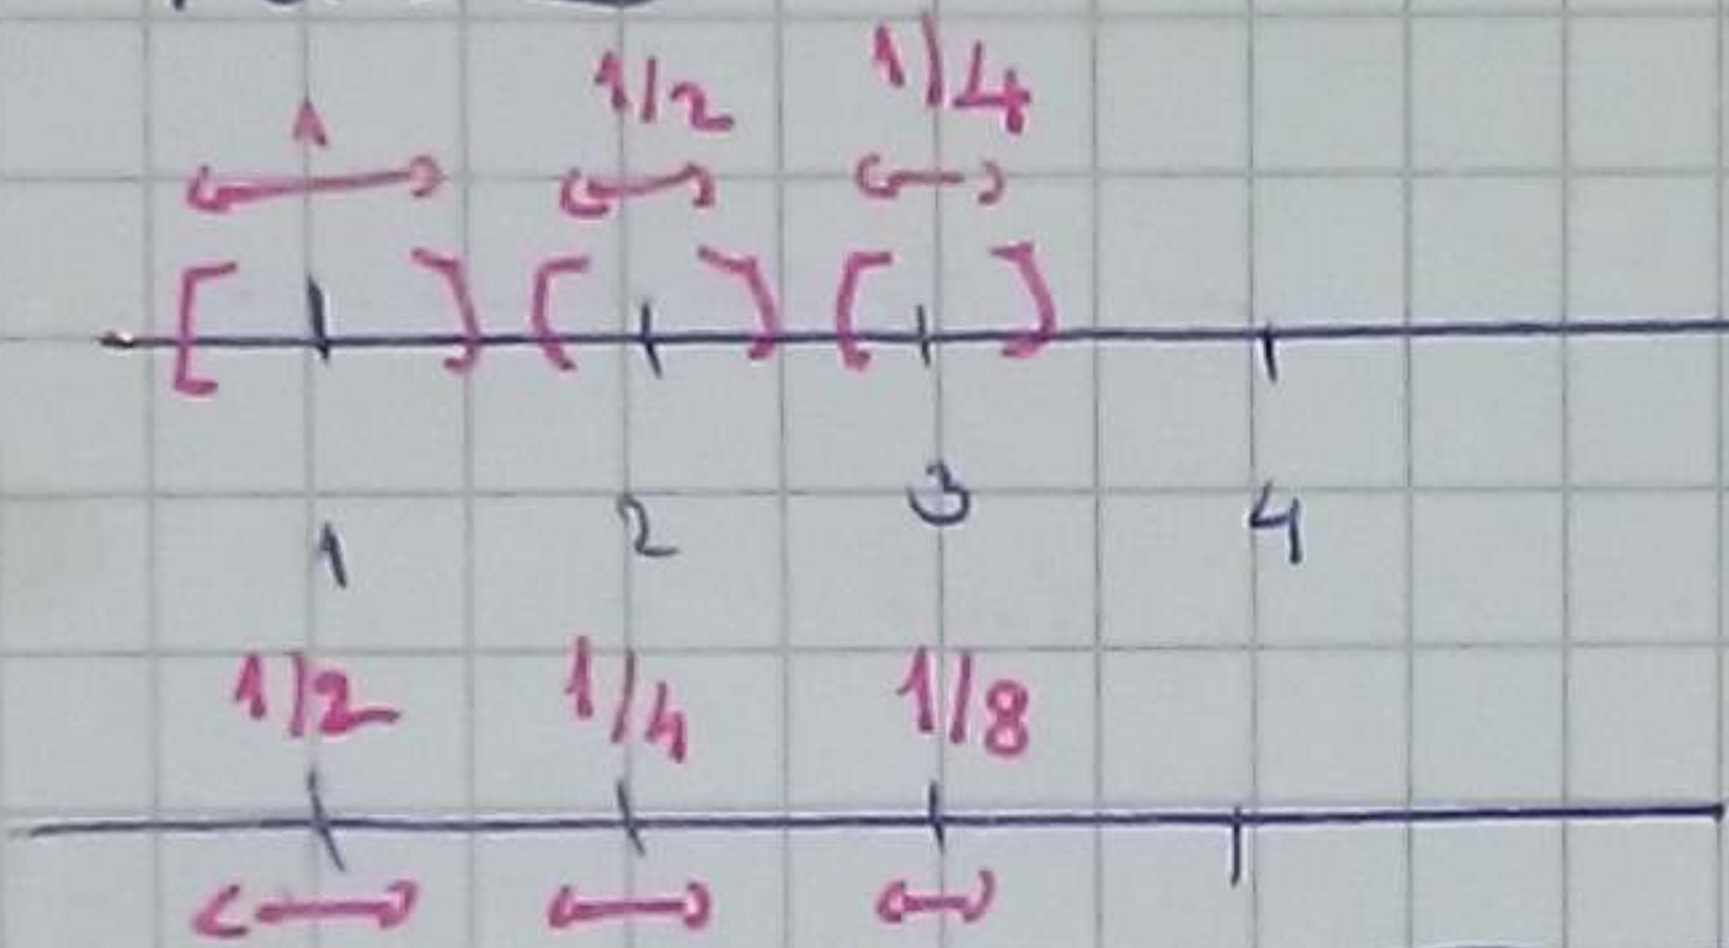 1 1/2 1/4
[ ) ( ) ( )
1 2 3 4
1/2 1/4 1/8